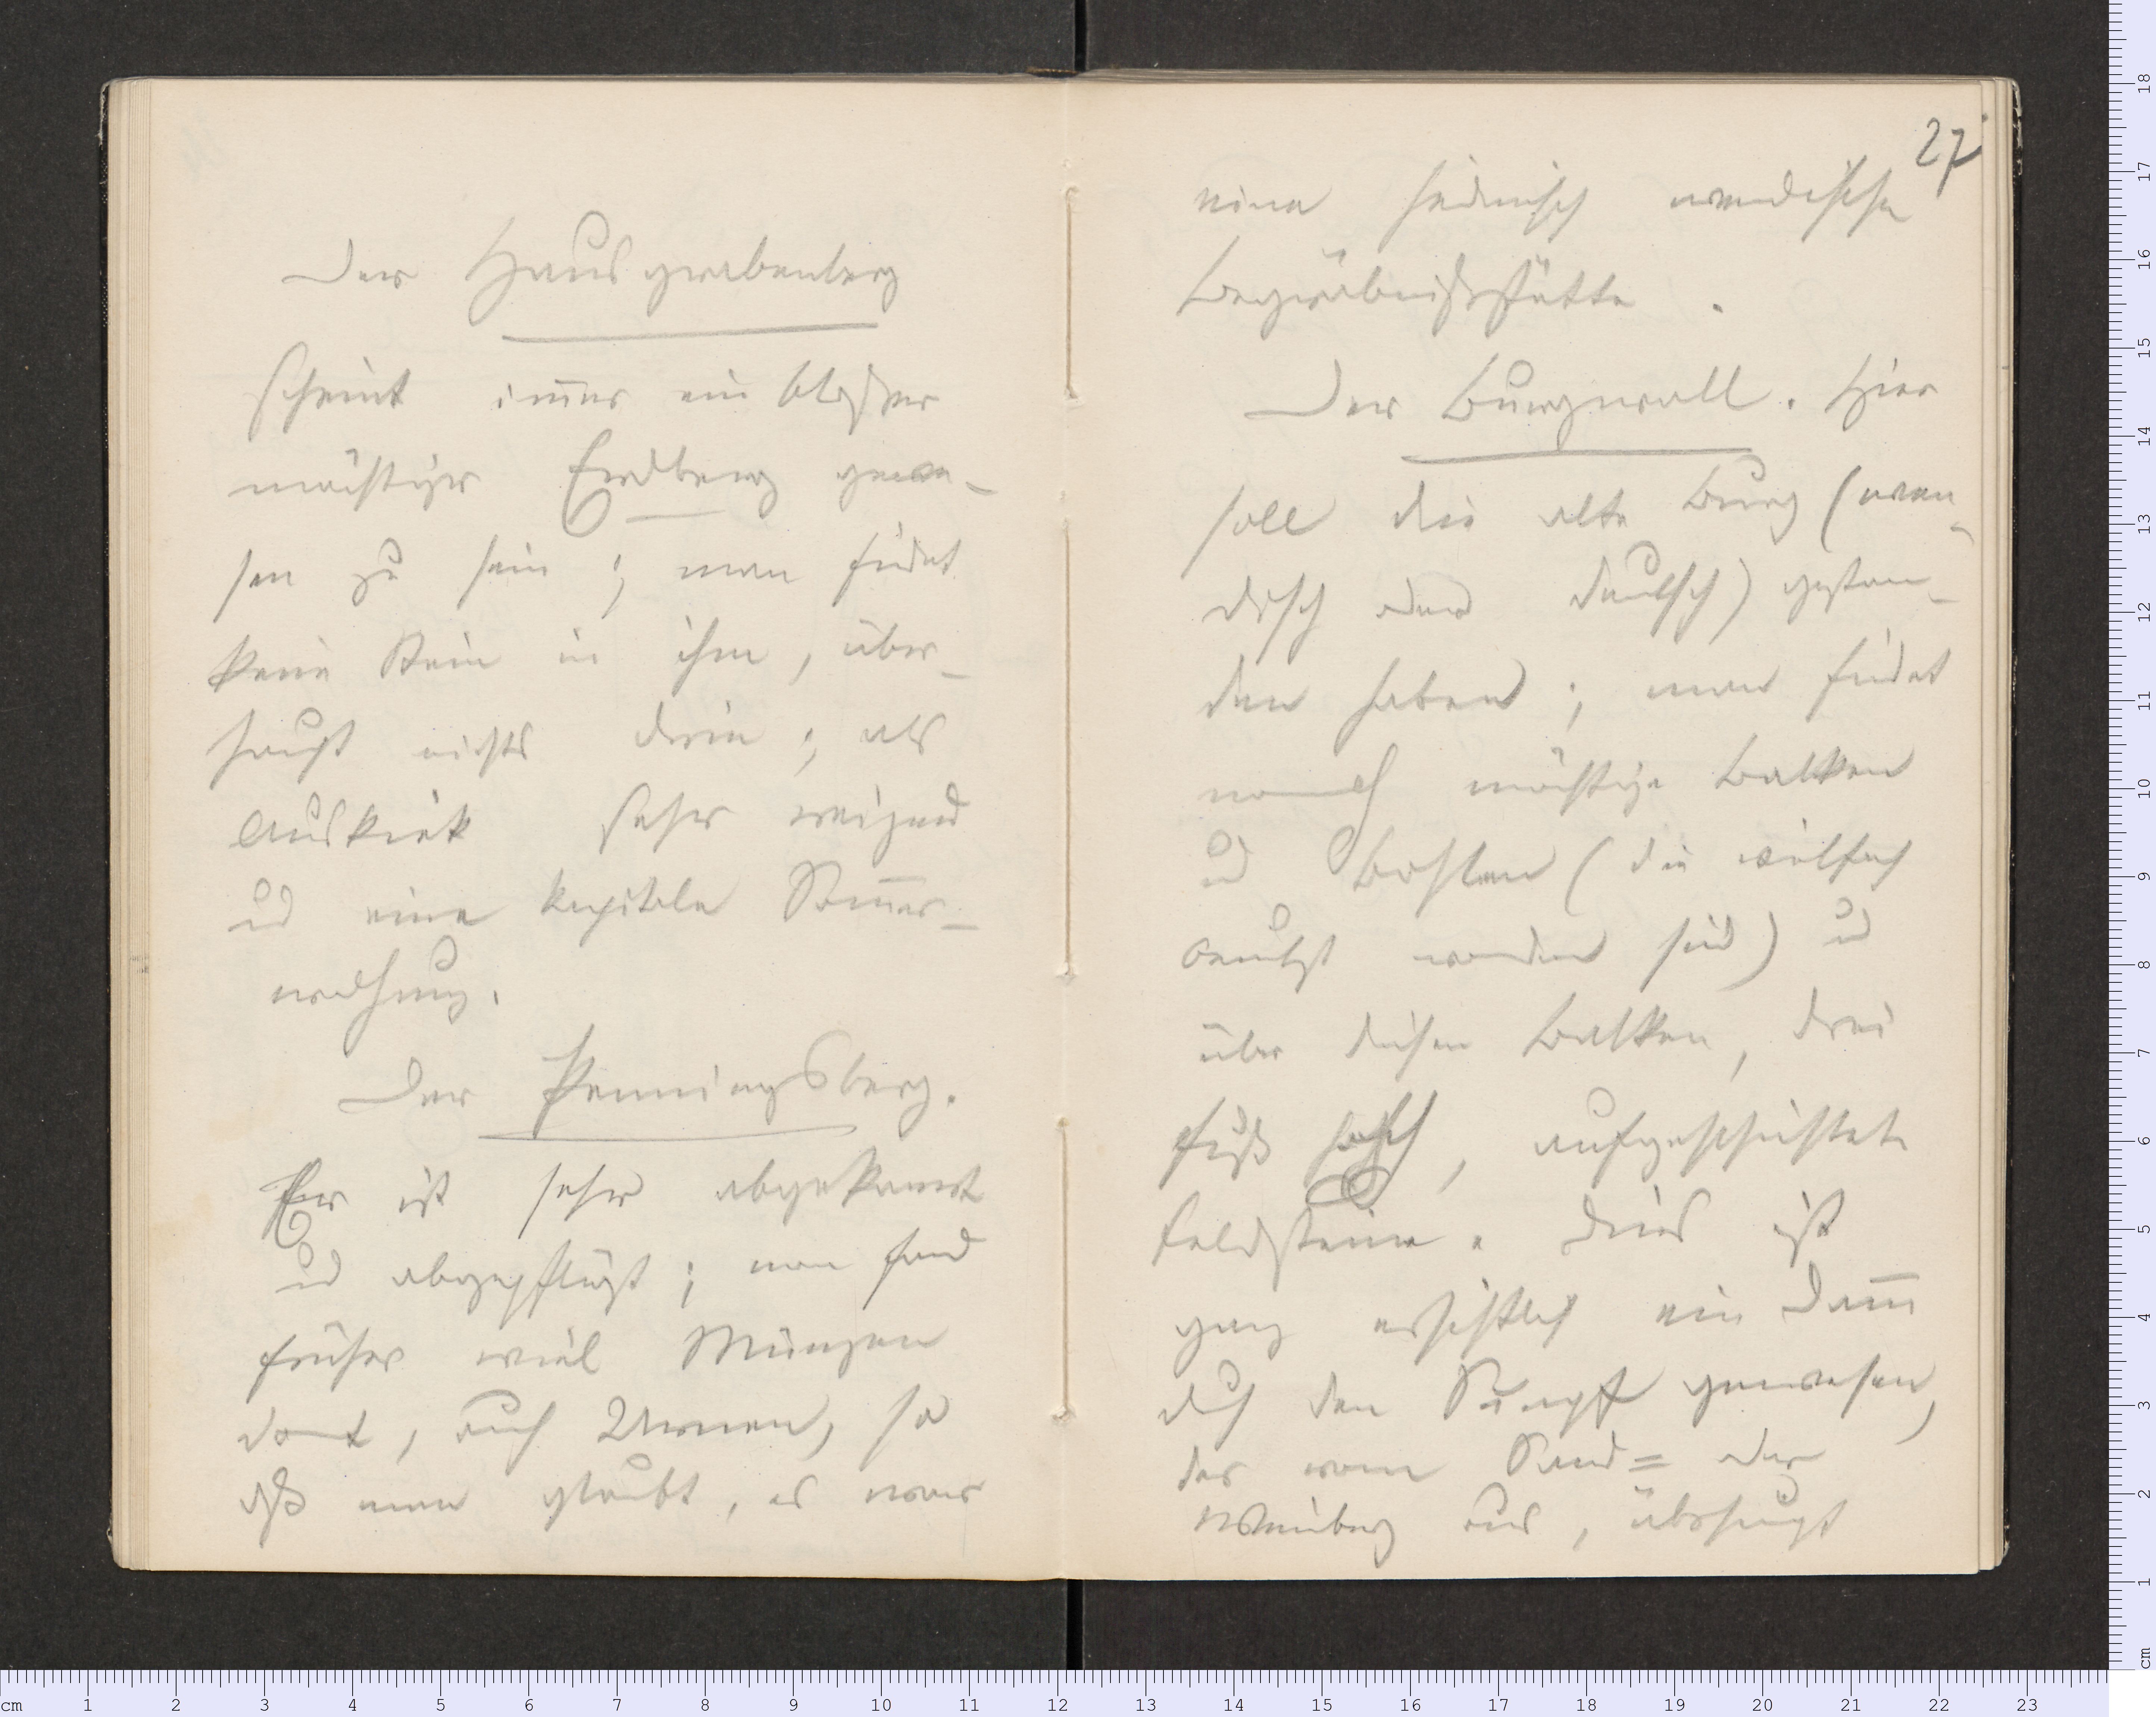 Der Hausgrabenberg
scheint im̄er ein bloßer
mächtiger Erdberg gewe-
sen zu sein; man findet
keine Stein in ihm, über-
haupt nichts drin; als
Auskiek sehr reizend
und eine kapitale Som̄er-
wohnung.
Der Penningsberg.
Er ist sehr abgekarrt
und abgepflügt; man fand
früher viel Münzen
dort, auch Urnen, so
dß man glaubt, es war
27
eine heidnisch wendische
Begräbnißstätte.
Der Burgwall. Hier
soll die alte Burg (wen-
disch oder deutsch) gestan-
den haben; man findet
noch mächtige Balken
und Bohlen (die vielfach
benutzt worden sind) und
über diesen Balken, drei
Fuß hoch, aufgeschichtete
Feldsteine. Dies ist
ganz ersichtlich ein Dam̄
durch den Sumpf gewesen,
der vom Sand= oder
Weinberg aus, überhaupt